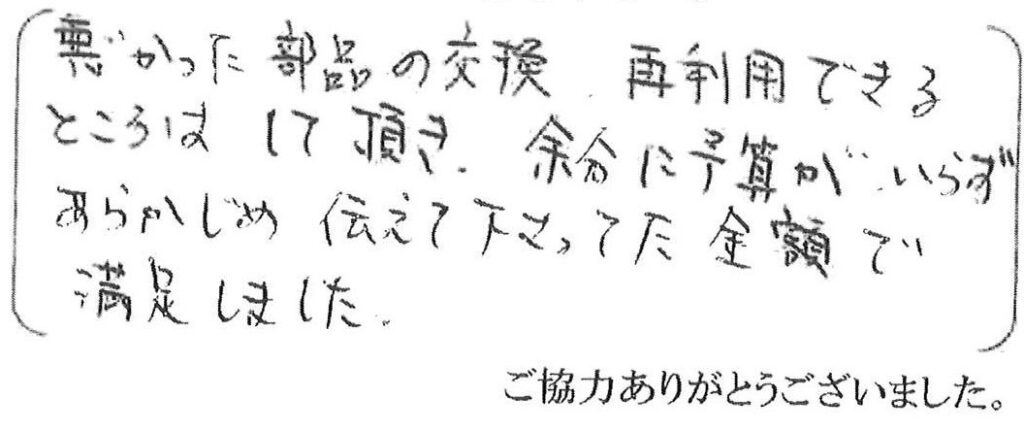 悪かった部品の交換、再利用できる
ところは して頂き、余分に予算が、いらず
あらかじめ 伝えて下さってた金額で
満足しました。
ご協力ありがとうございました。